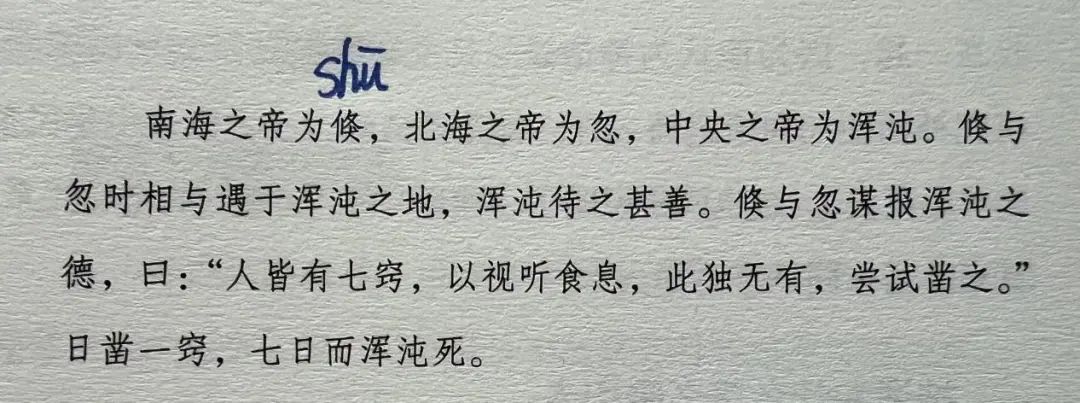 shū
南海之帝为倏，北海之帝为忽，中央之帝为浑沌。倏与
忽时相与遇于浑沌之地，浑沌待之甚善。倏与忽谋报浑沌之
德，曰：“人皆有七窍，以视听食息，此独无有，尝试凿之。”
日凿一窍，七日而浑沌死。